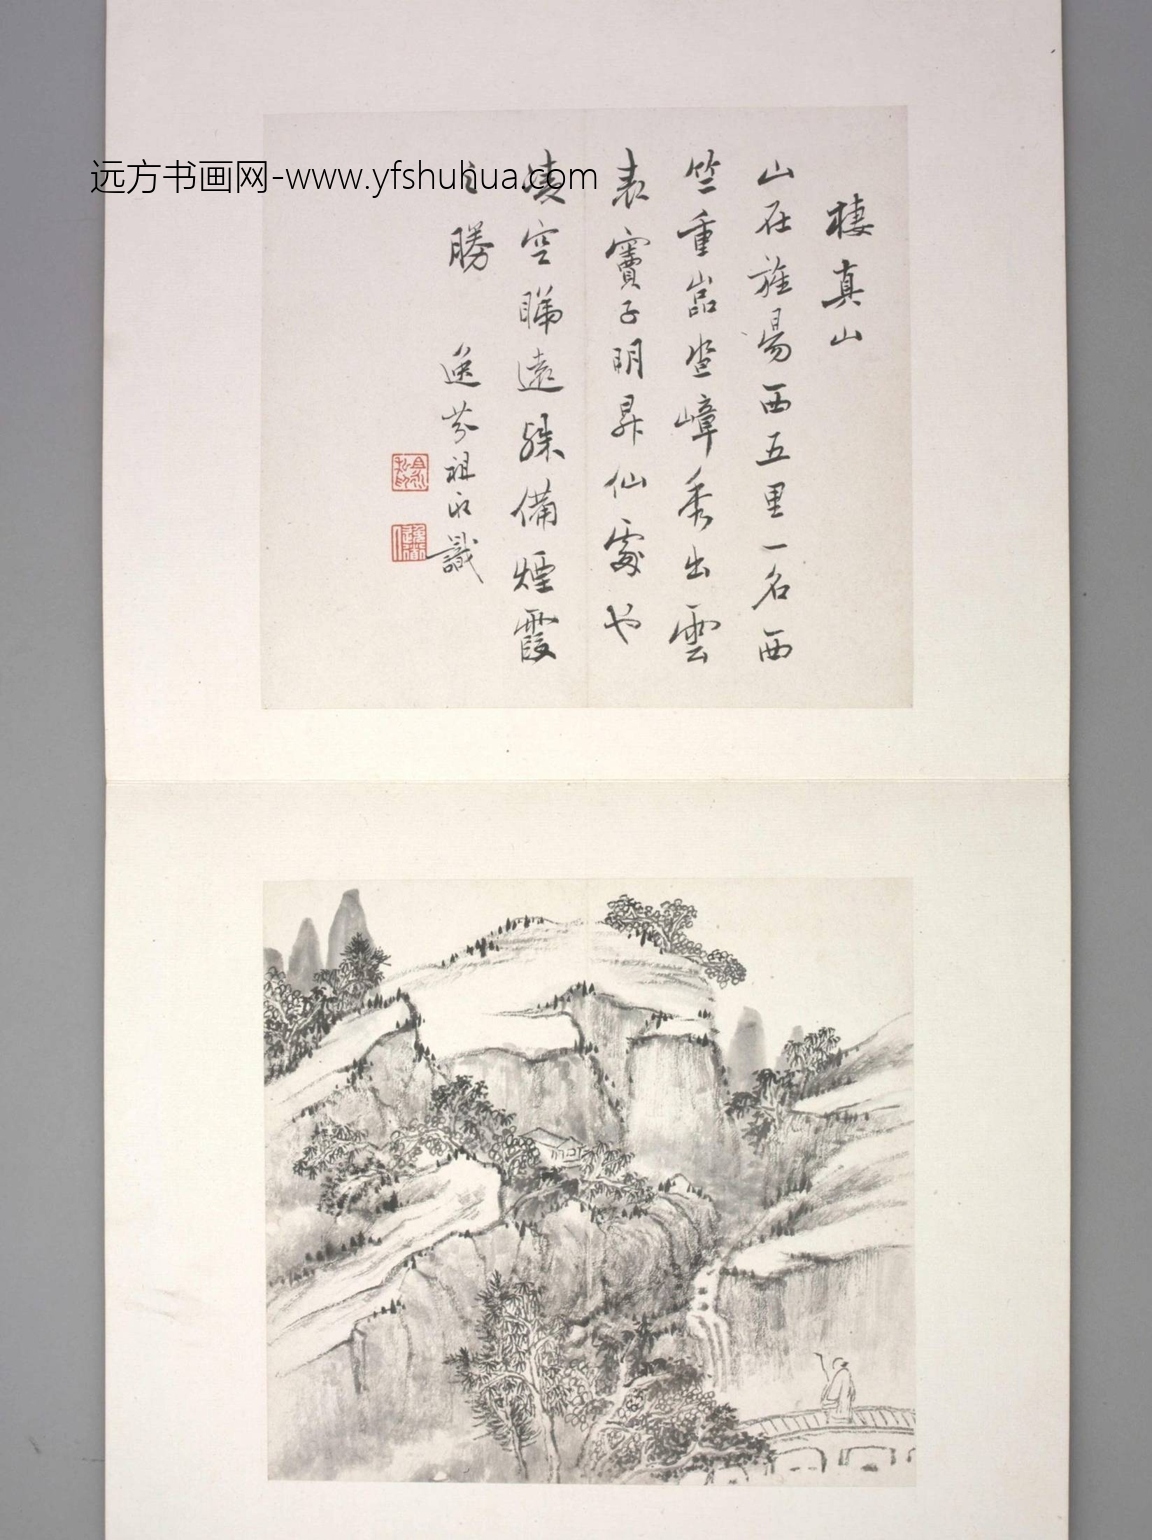 棲真山
山在旌陽西五里一名西
竺重嵓沓嶂秀出雲
表竇子明昇仙處也
凌空睇遠殊備煙霞
之勝
逸芬祖永識
远方书画网-www.yfshuhua.com